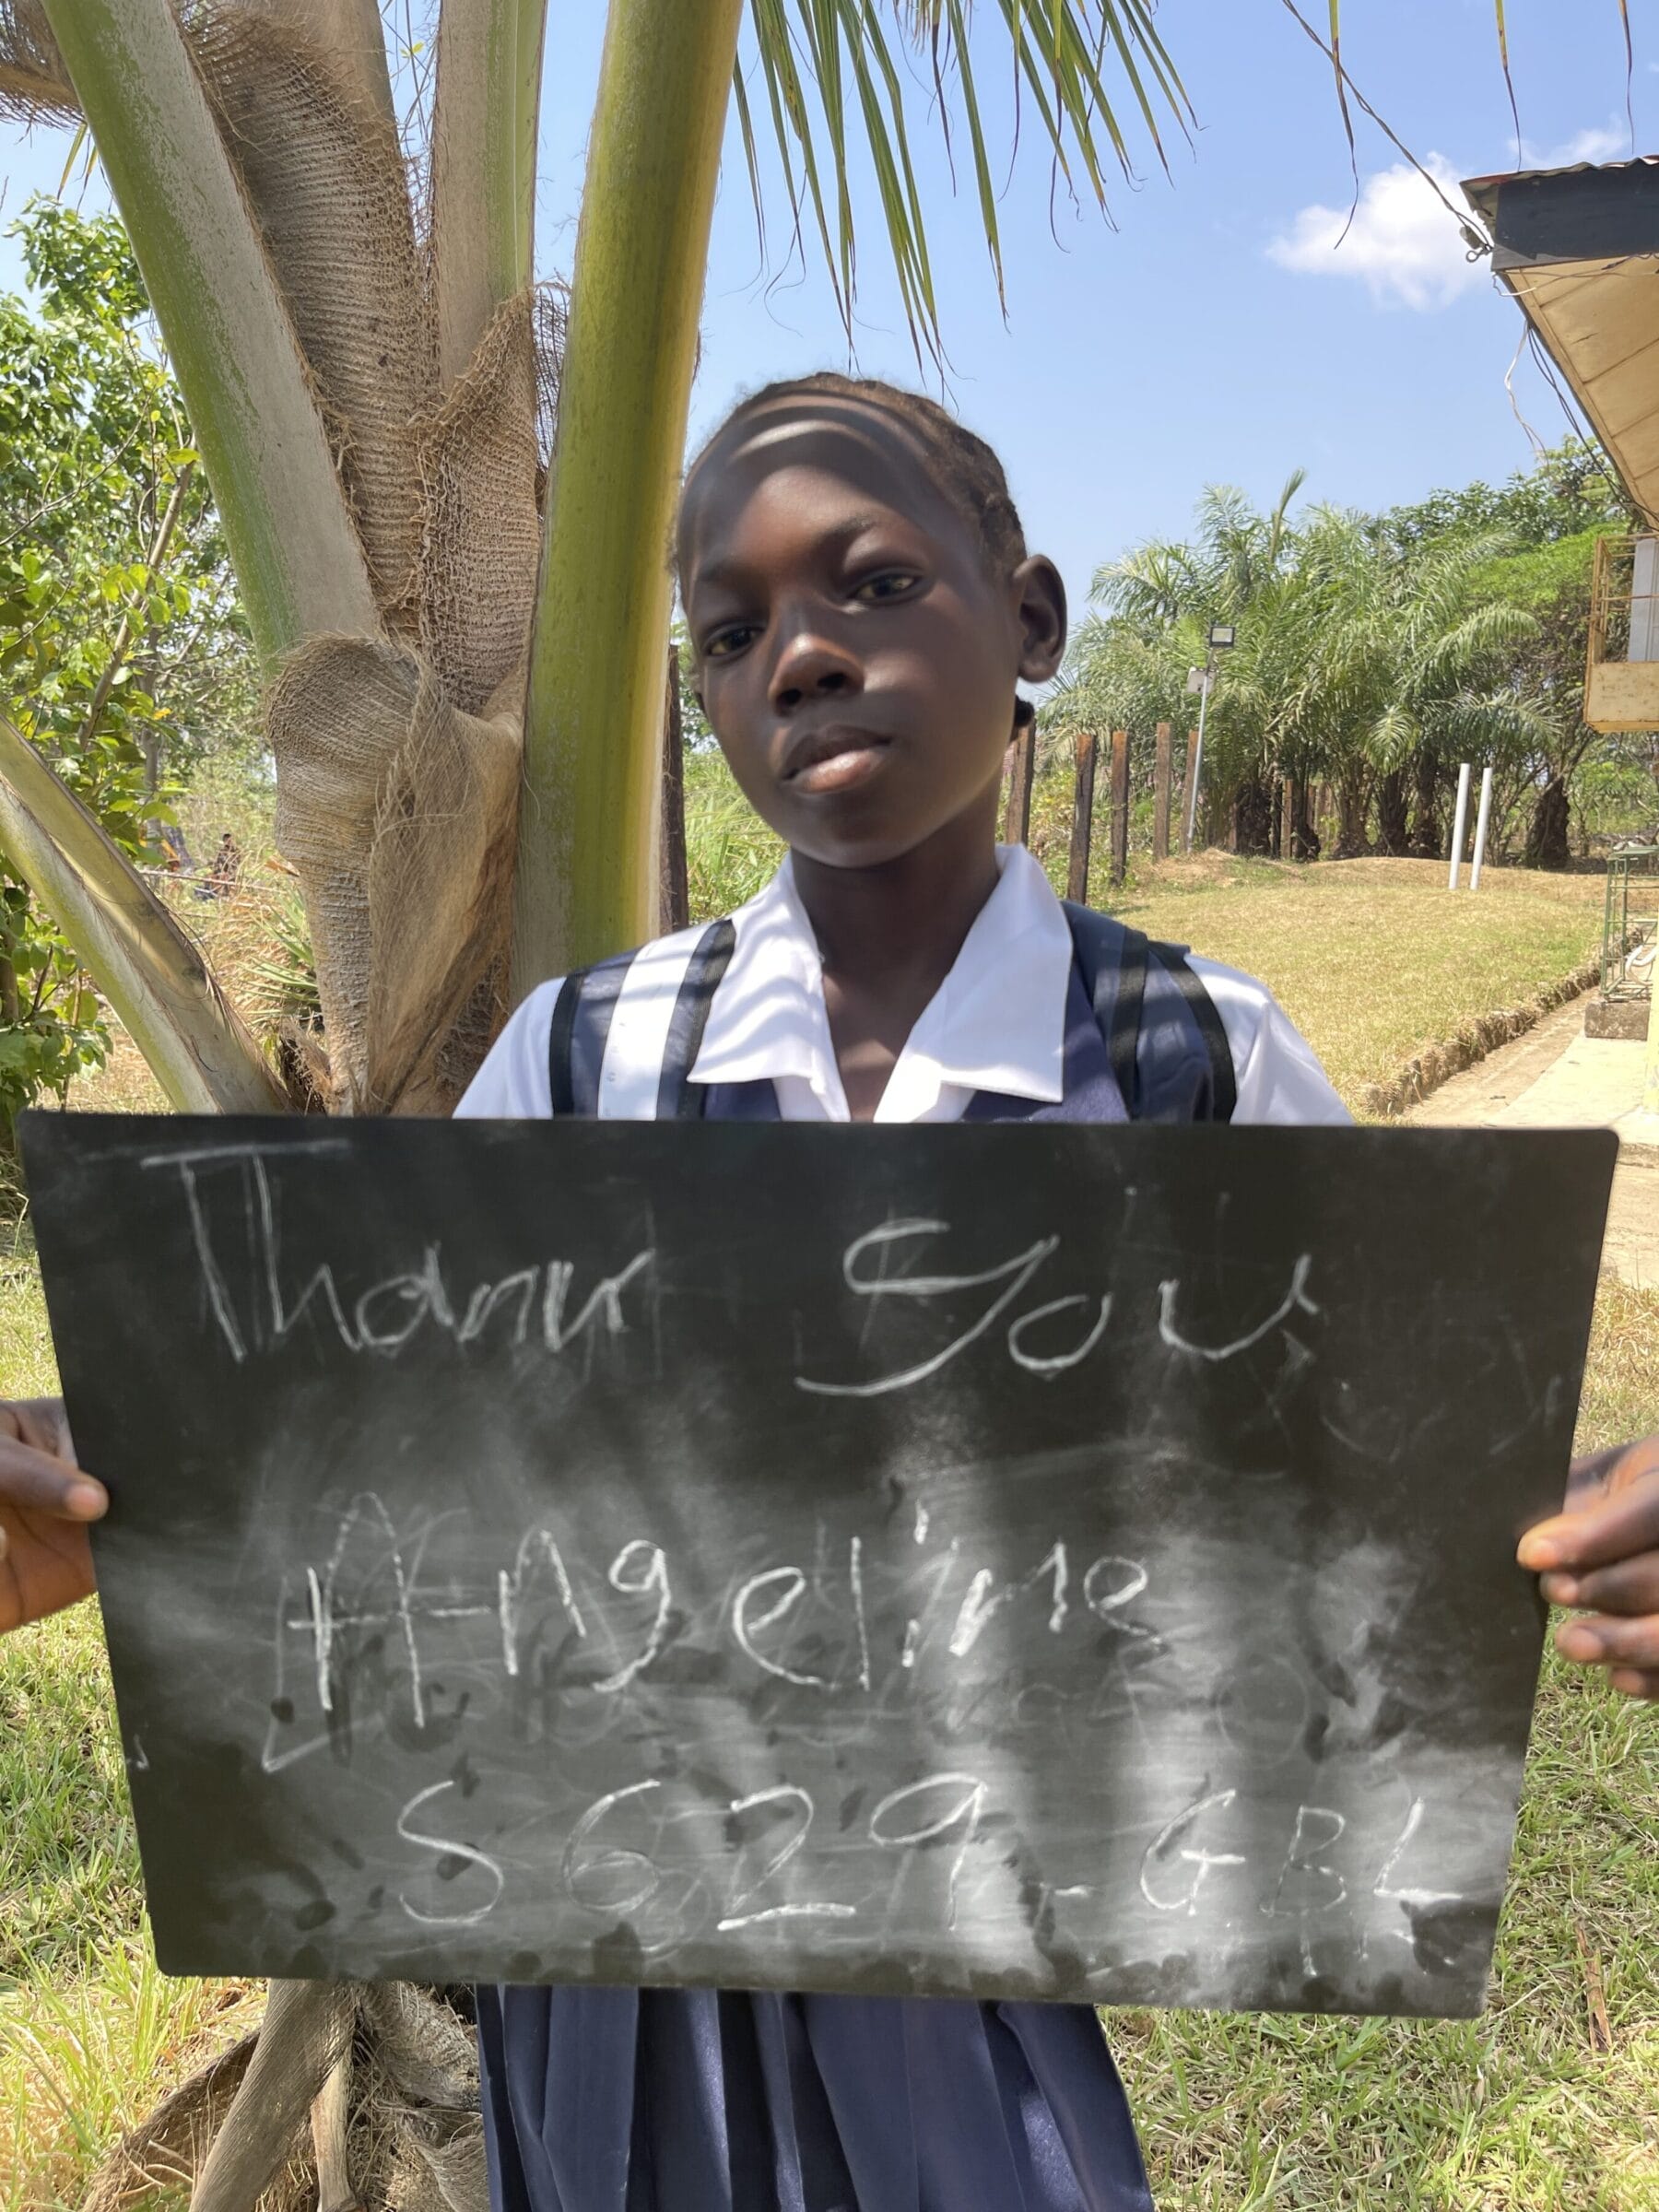 Thank you
Angeline
S629-GBL